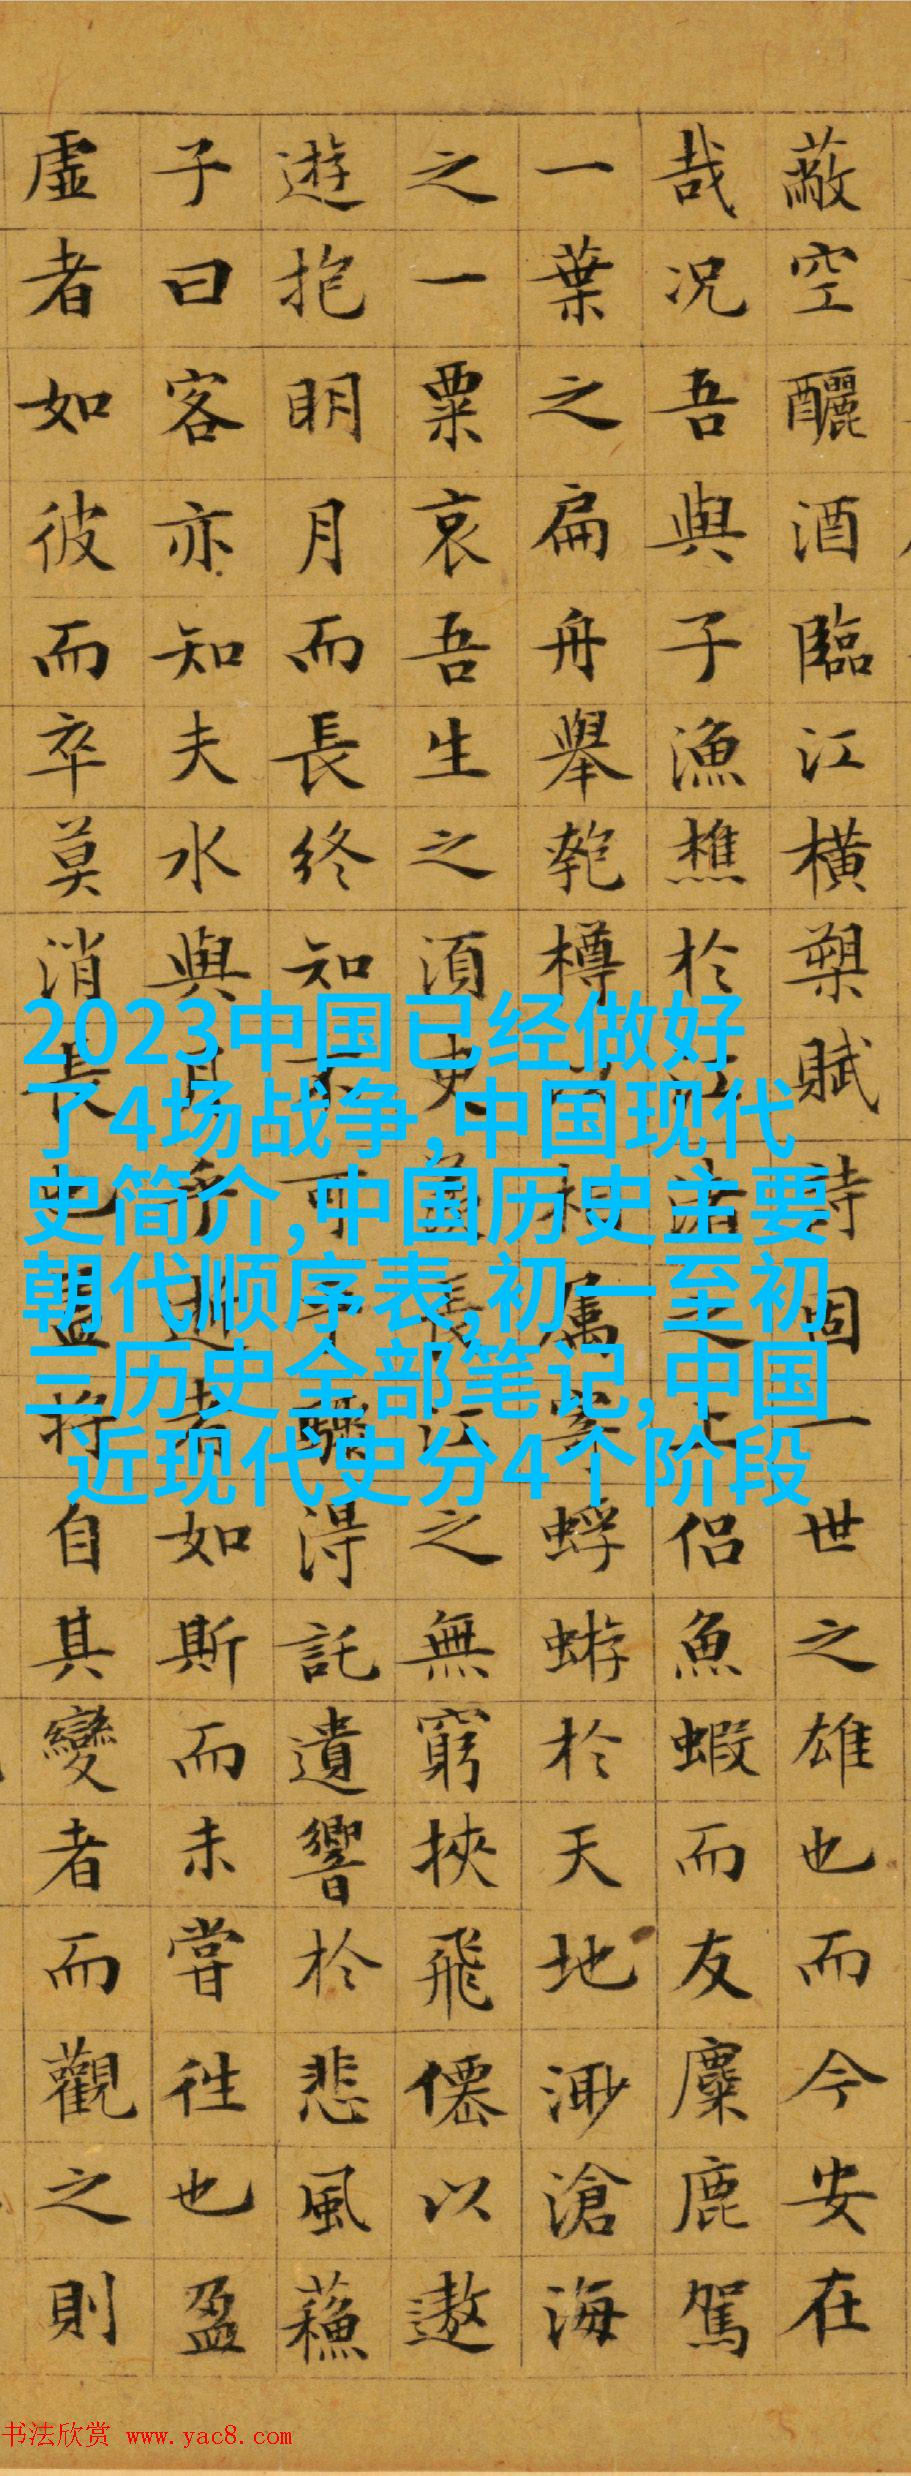 蔽空釃酒臨江橫槊賦詩固一世之雄也而今安在
哉况吾與子漁樵於江渚之上侶魚蝦而友麋鹿駕
一葉之扁舟舉匏樽以相属寄蜉蝣於天地渺滄海
之一粟哀吾生之須臾羨長江之無窮挾飛僊以遨
遊抱明月而長終知不可乎驟得託遺響於悲風蘓
子曰客亦知夫水與月乎逝者如斯而未嘗往也盈
虛者如彼而卒莫消長也盖將自其變者而觀之則
2023中国已经做好
了4场战争,中国现代
史简介,中国历史主要
朝代顺序表,初一至初
三历史全部笔记,中国
近现代史分4个阶段
书法欣赏 www.yac8.com